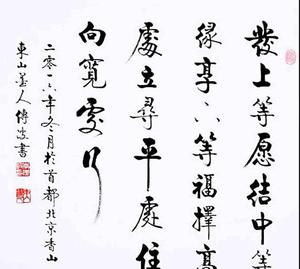 發上等愿结中等
緣享下等福擇高
處立尋平處住
向寬處行
二零一六年冬月於首都北京香山
東山人書